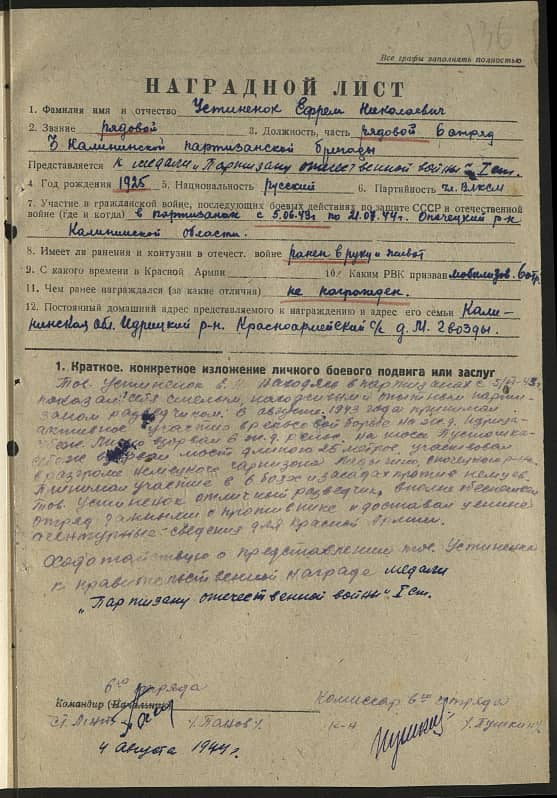 136
Все графы заполнять полностью
НАГРАДНОЙ ЛИСТ
1. Фамилия имя и отчество Устиненок Ефрем Николаевич
2. Звание рядовой 3. Должность, часть рядовой 6 отряд
3 Калининской партизанской бригады
Представляется к медали „Партизану отечественной войны" I ст.
4 Год рождения 1925 5. Национальность русский 6. Партийность чл. ВЛКСМ
7. Участие в гражданской войне, последующих боевых действиях по защите СССР и отечественной
войне (где и когда) в партизанах с 5.06.43г. по 21.07.44г. Опочецкий р-н
Калининской области.
8. Имеет ли ранения и контузии в отечест. войне ранен в руку и живот
9. С какого времени в Красной Армии 10. Каким РВК призван мобилизов.
11. Чем ранее награждался (за какие отличия) не награжден.
12. Постоянный домашний адрес представляемого к награждению и адрес его семьи Кали-
нинская обл. Идрицкий р-н. Красноармейский с/с д. М. Гвозды.
1. Краткое, конкретное изложение личного боевого подвига или заслуг
Тов. Устиненок Находясь в партизанах с
показал себя смелым, находчивым и опытным парти-
заном разведчиком. В августе 1943 года принимал
активное участие в рельсовой борьбе на жел.
взорвал 6 ж.д. рельс. на шоссе Пустошка-
мост длиною 25 метров, участвовал
в разгроме немецкого гарнизона Опочецкого р-на.
Принимал участие в 6 боях и засадах против немцев.
Тов. Устиненок отличный разведчик, вполне обеспечивал
отряд данными о противнике и доставал ценные
агентурные сведения для Красной Армии.
Ходотайствую о представлении тов. Устиненок
к правительственной награде медали
„Партизану отечественной войны" I ст.
6го отряда
Командир (Начальник) Комиссар 6го отряда
ст. Лейт. /Панов/ к-н /Пушкин/
4 августа 1944 г.